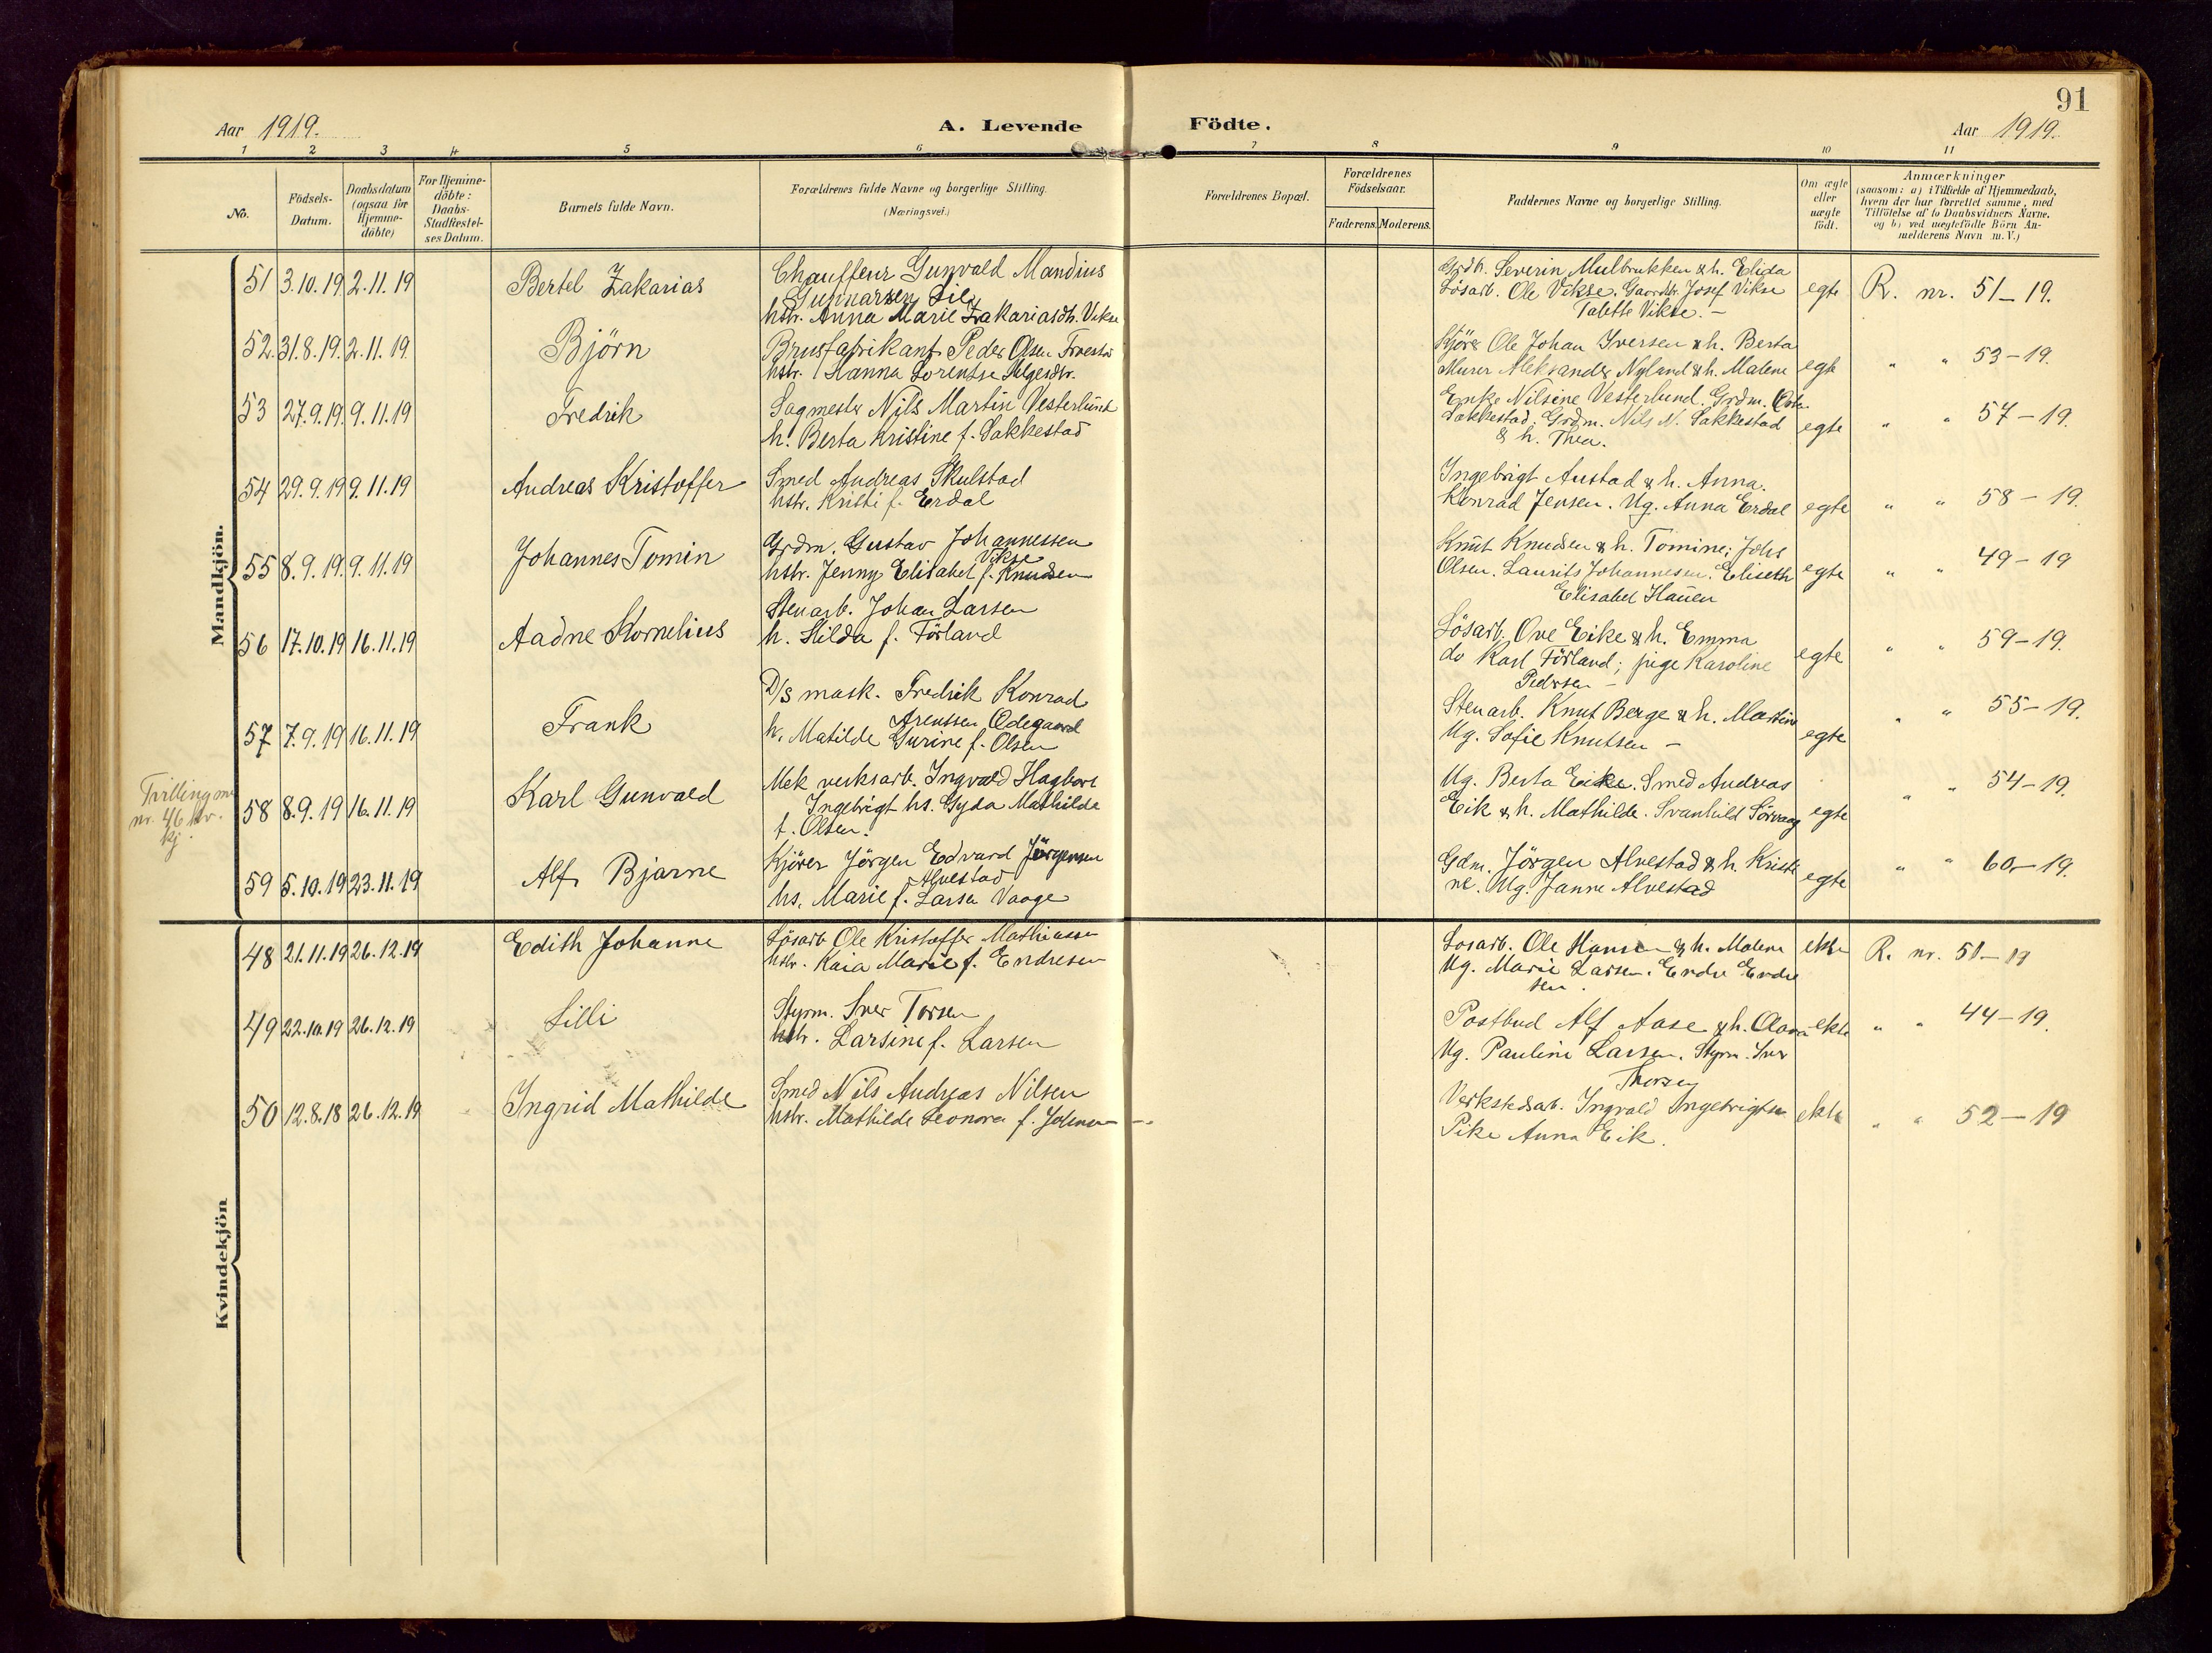 91
Aar 1919.
A. Levende Födte.
Aar 1919.
1 2 3 4 5 6 7 8 9 10 11
No.
Födsels-
Datum.
Daabsdatum
(ogsaa for
Hjemme-
döbte)
For Hjemme-
döbte:
Daabs-
Stadfæstel-
ses Datum.
Barnets fulde Navn.
Forældrenes fulde Navne og borgerlige Stilling.
(Næringsvei.)
Forældrenes Bopæl.
Forældrenes
Födselsaar.
Faderens. Moderens.
Faddernes Navne og borgerlige Stilling.
Om ægte
eller
uægte
födt.
Anmærkninger
(saasom: a) i Tilfælde af Hjemmedaab,
hvem der har forrettet samme, med
Tilföielse af to Daabsvidners Navne,
og b) ved uægtefödte Börn An-
melderens Navn m. V.)
Mandkjön.
51 3.10.19 2.11.19 Bertel Zakarias
Chauffeur Gunvald Mandius
Gunnarsen Lie
hstr. Anna Marie Zakariasdtr. Vikse
Grdb. Severin Mulbrukken & h. Elida
Lösarb. Ole Vikse. Gaardbr. Josef Vikse
Talette Vikse. –
egte R. nr. 51–19.
52 31.8.19. 2.11.19. Björn
Brusfabrikant Peder Olsen
hstr. Hanna Lorentse
Kjörer Ole Johan Iversen & h. Berta
Murer Aleksander Nyland & h. Malene
egte " " 53–19.
53 27.9.19. 9.11.19 Fredrik
Sagmester Nils Martin Vesterlund
h. Berta Kristine f. Sakkestad
Enke Nilsine Vesterlund. Grdm.
Sakkestad; Grdm. Nils N. Sakkestad
& h. Thea.
egte " " 57–19.
54 29.9.19 9.11.19 Andreas Kristoffer
Smed Andreas Skulstad
hstr. Kristi f. Erdal
Ingebrigt Austad & h. Anna.
Konrad Jensen. Ug. Anna Erdal
egte " " 58–19.
55 8.9.19. 9.11.19 Johannes Tomin
Grdm. Gustav Johannessen
Vikse
hstr. Jenny Elisabet f. Knudsen
Knut Knudsen & h. Tomine; Johs
Olsen. Laurits Johannessen. Eliseth
Elisabet Hauen
egte " " 49–19
56 17.10.19 16.11.19 Aadne Kornelius
Stenarb. Johan Larsen
h. Hilda f. Förland
Lösarb. Ove Eike & h. Emma
do Karl Förland; pige Karoline
Pedersen –
egte " " 59–19.
57 7.9.19 16.11.19 Frank
D/s mask. Fredrik Konrad
Arentsen Ödegaard
h. Matilde Gurine f. Olsen
Stenarb. Knut Berge & h. Martine
Ug. Sofie Knutsen –
egte " " 55–19.
Trilling m
nr. 46 kv.
kj.
58 8.9.19 16.11.19 Karl Gunvald
Mek verksarb. Ingvald Hagbart
Ingebrigt hs. Gyda Mathilde
f. Olsen.
Ug. Berta Eike. Smed Andreas
Eik & h. Mathilde. Svanhild Sörvaag
egte " " 54–19.
59 5.10.19 23.11.19 Alf Bjarne
Kjörer Jörgen Edvard Jörgensen
Alvestad
hs. Marie f. Larsen Vaage
Gdm. Jörgen Alvestad & h. Kristi
ne. Ug. Janne Alvestad
egte " " 60–19.
Kvindekjön
48 21.11.19 26.12.19 Edith Johanne
Lösarb Ole Kristoffer Mathiassen
hstr. Kaia Marie f. Endresen
Losarb. Ole Hansen & h. Malene
Ug. Marie Larsen. Endre Endre
sen.
ekte R. nr. 51–19
49 22.10.19 26.12.19 Lilli
Styrm. Iver Torsen
hstr. Larsine f. Larsen
Postbud Alf Aase & h. Olava
Ug. Pauline Larsen. Styrm. Iver
Thorsen
ekte " " 44–19.
50 12.8.18 26.12.19 Ingrid Mathilde
Smed Nils Andreas Nilsen
hstr. Mathilde Leonora f. Johnsen
Verkstedsarb. Ingvald Ingebrigtsen
Pike Anna Eik.
ekte " " 52–19